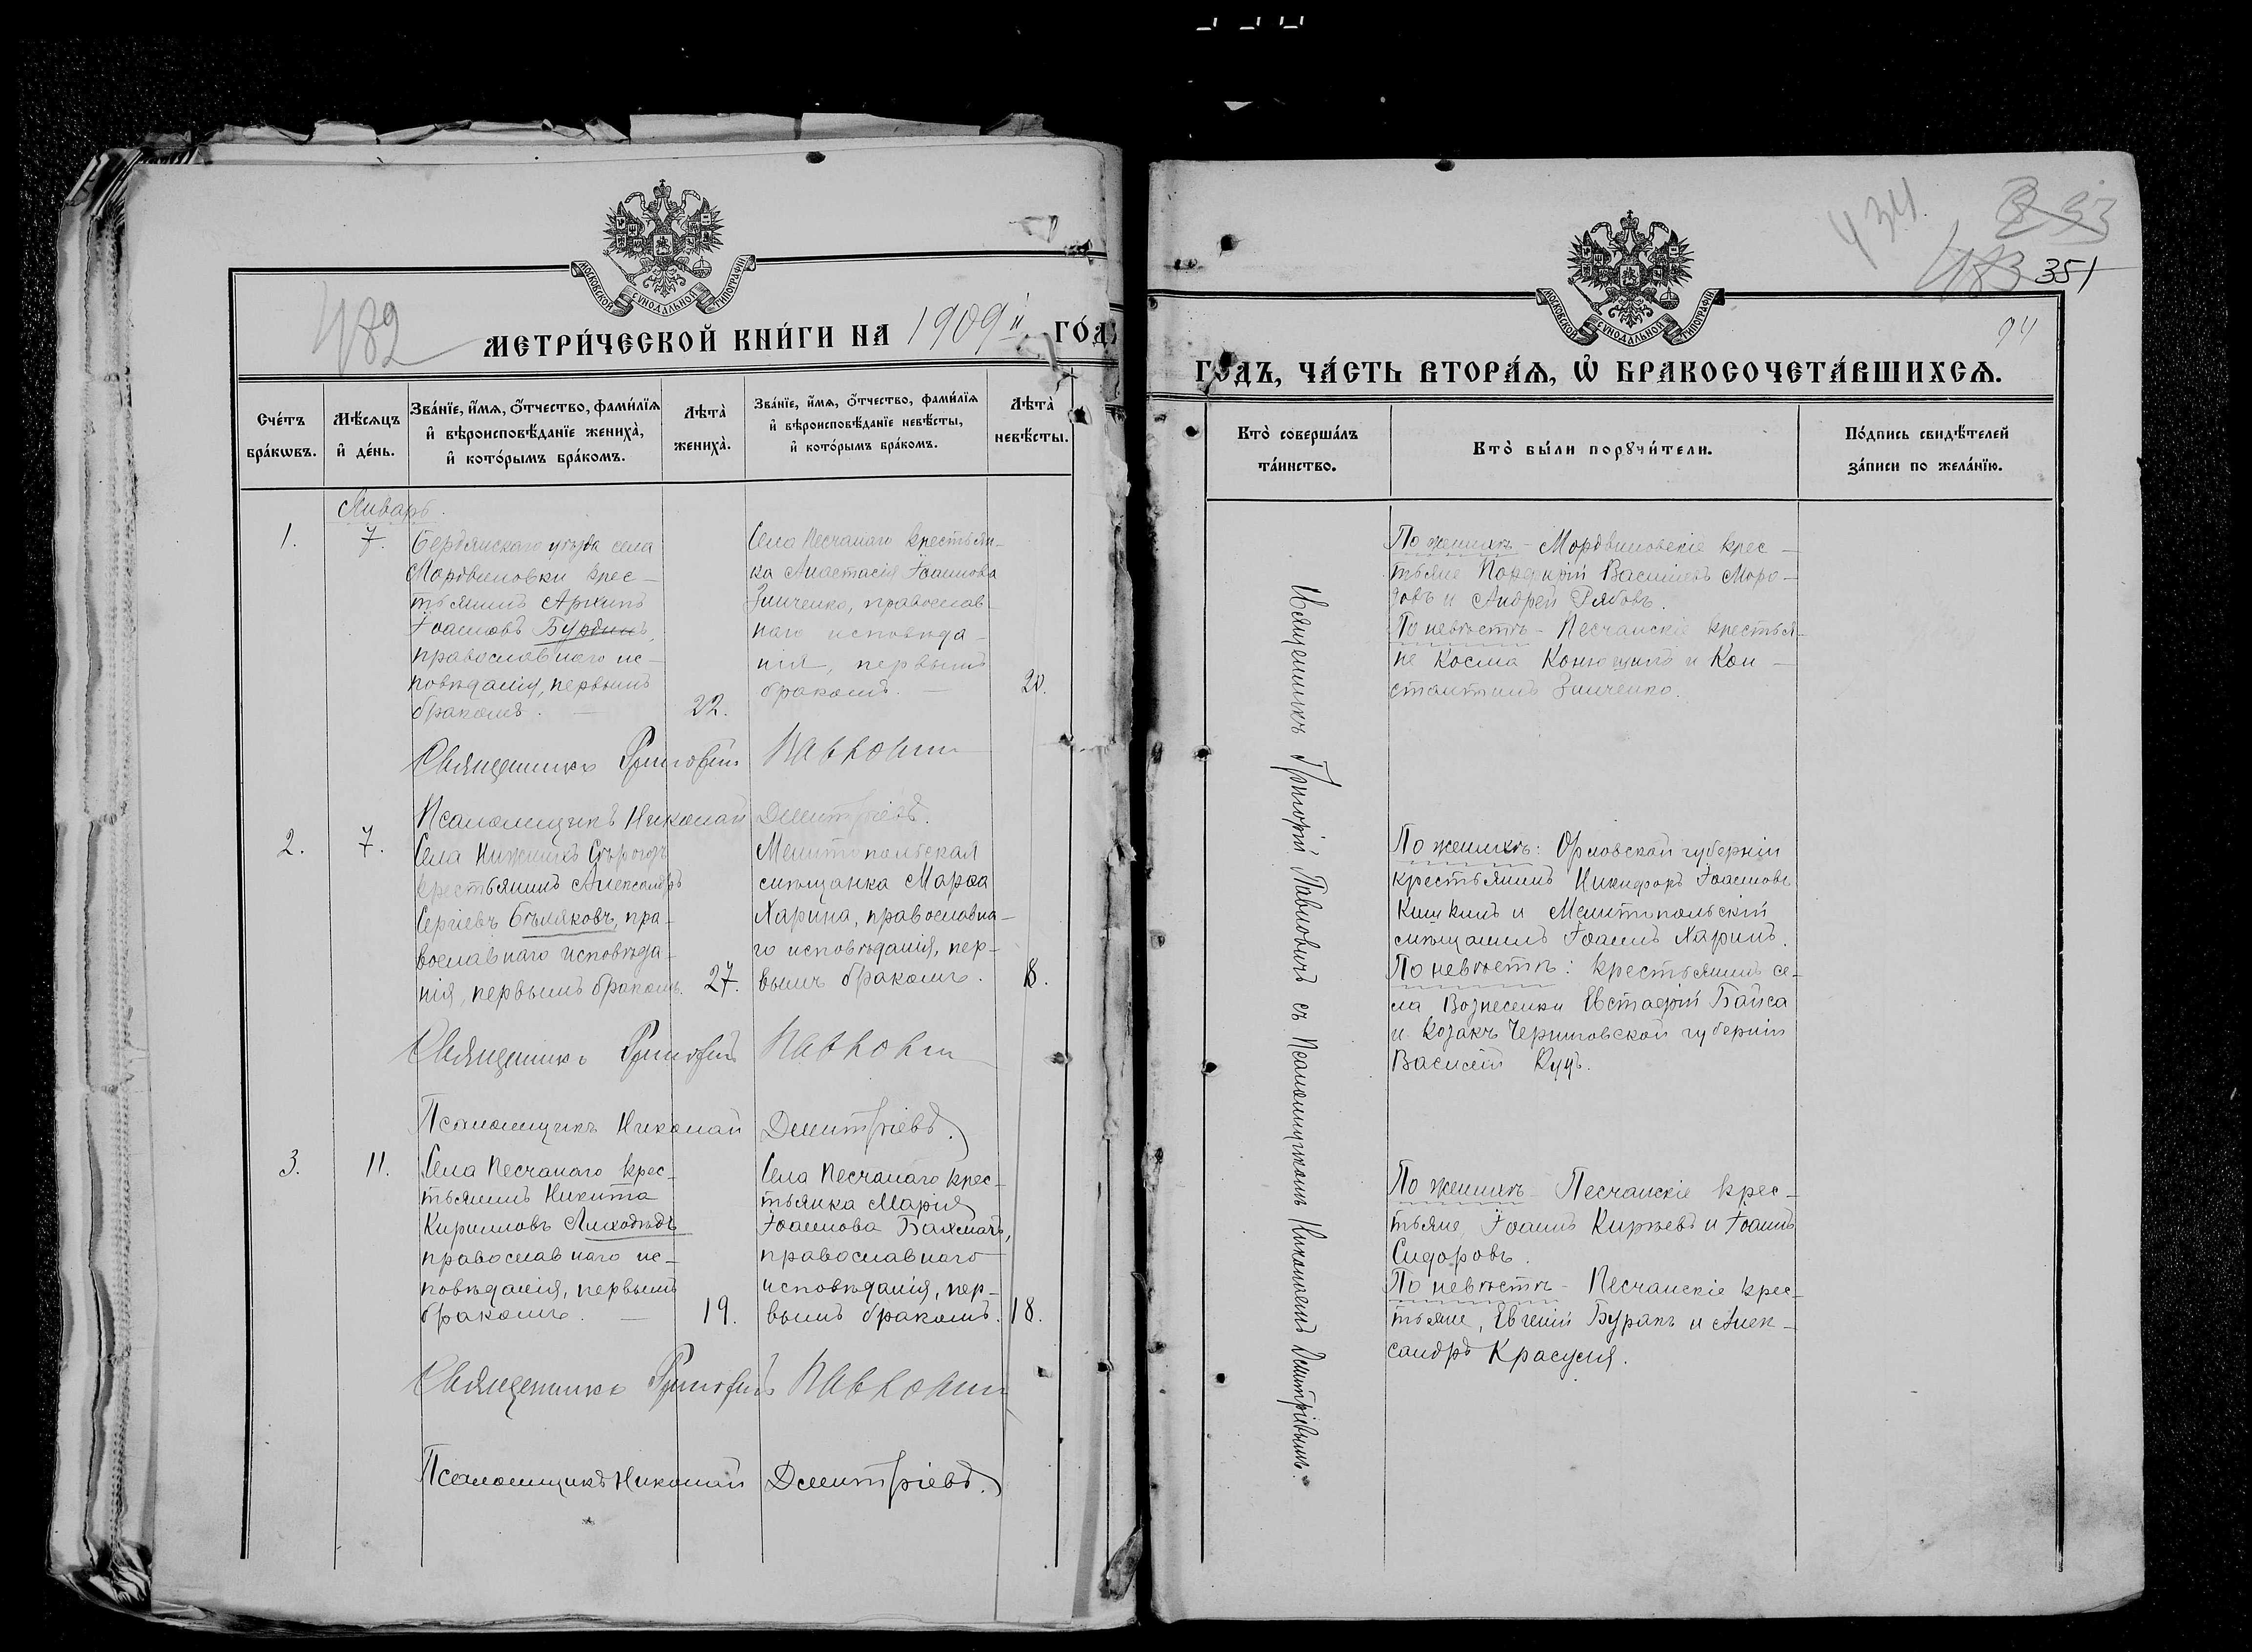 МОСКОВСКОЙ СУНОДАЛЬНОЙ ТИПОГРАФІИ
482
МЕТРИ́ЧЕСКОЙ КНИ́ГИ НА 1909й ГО́ДЪ
Сче́тъ бра́кѡвъ.
Мѣ́сяцъ и҆ де́нь.
Зва́нїе, и҆́мѧ, ѻ҆́тчество, фами́лїѧ и҆ вѣроисповѣ́данїе жениха̀, и҆ кото́рымъ бра́комъ.
Лѣта̀ жениха̀.
Зва́нїе, и҆́мѧ, ѻ҆́тчество, фами́лїѧ и҆ вѣроисповѣ́данїе невѣ́сты, и҆ кото́рымъ бра́комъ.
Лѣта̀ невѣ́сты.
Январь.
1.
7.
Бердянскаго уѣзда села
Мордвиновки крес-
тьянинъ Архипъ
Іоанновъ Бурдинъ,
православнаго ис-
повѣданія, первымъ
бракомъ.
22.
Села Песчанаго крестьян-
ка Анастасія Іоаннова
Зинченко, православ-
наго исповѣда-
нія, первымъ
бракомъ.
20.
Священникъ Григорій
Псаломщикъ Николай Дмитріевъ.
2.
7.
Села Нижнихъ Сѣрогозъ
крестьянинъ Александръ
Сергіевъ Бѣляковъ, пра-
вославнаго исповѣда-
нія, первымъ бракомъ.
27.
Мелитопольская
мѣщанка Марѳа
Харина, православна-
го исповѣданія, пер-
вымъ бракомъ.
18.
Священникъ Григорій
Псаломщикъ Николай Дмитріевъ.
3.
11.
Села Песчанаго крес-
тьянинъ Никита
Кирилловъ Лиходѣдъ
православнаго ис-
повѣданія, первымъ
бракомъ.
19.
Села Песчанаго крес-
тьянка Марія
Іоаннова Бахмачъ,
православнаго
исповѣданія, пер-
вымъ бракомъ.
18.
Священникъ Григорій
Псаломщикъ Николай Дмитріевъ.
434
351
94
МОСКОВСКОЙ СУНОДАЛЬНОЙ ТИПОГРАФІИ
ГО́ДЪ, ЧА́СТЬ ВТОРА́Ѧ, Ѽ БРАКОСОЧЕТА́ВШИХСѦ.
Кто̀ соверша́лъ та́инство.
Кто̀ бы́ли порꙋчи́тели.
По́дпись свидѣ́телей за́писи по жела́нїю.
Священникъ Григорій Павловичъ съ Псаломщикомъ Николаемъ Дмитріевымъ.
По женихѣ - Мордвиновскіе крес-
тьяне Васильевъ Моро-
зовъ и Андрей Рябовъ.
По невѣстѣ - Песчанскіе крестья-
не Косма и Кон-
стантинъ Зинченко.
По женихѣ: Орловской губерніи
крестьянинъ Никифоръ Іоанновъ
Кишкинъ и Мелитопольскій
мѣщанинъ Іоаннъ Харинъ.
По невѣстѣ: крестьянинъ се-
ла Вознесенки Евстафій Байса
и козакъ Черниговской губерніи
Василій
По женихѣ - Песчанскіе крес-
тьяне, Іоаннъ Кирѣевъ и Іоаннъ
Сидоровъ.
По невѣстѣ - Песчанскіе крес-
тьяне, Евгеній Буракъ и Алек-
сандръ Красуля.